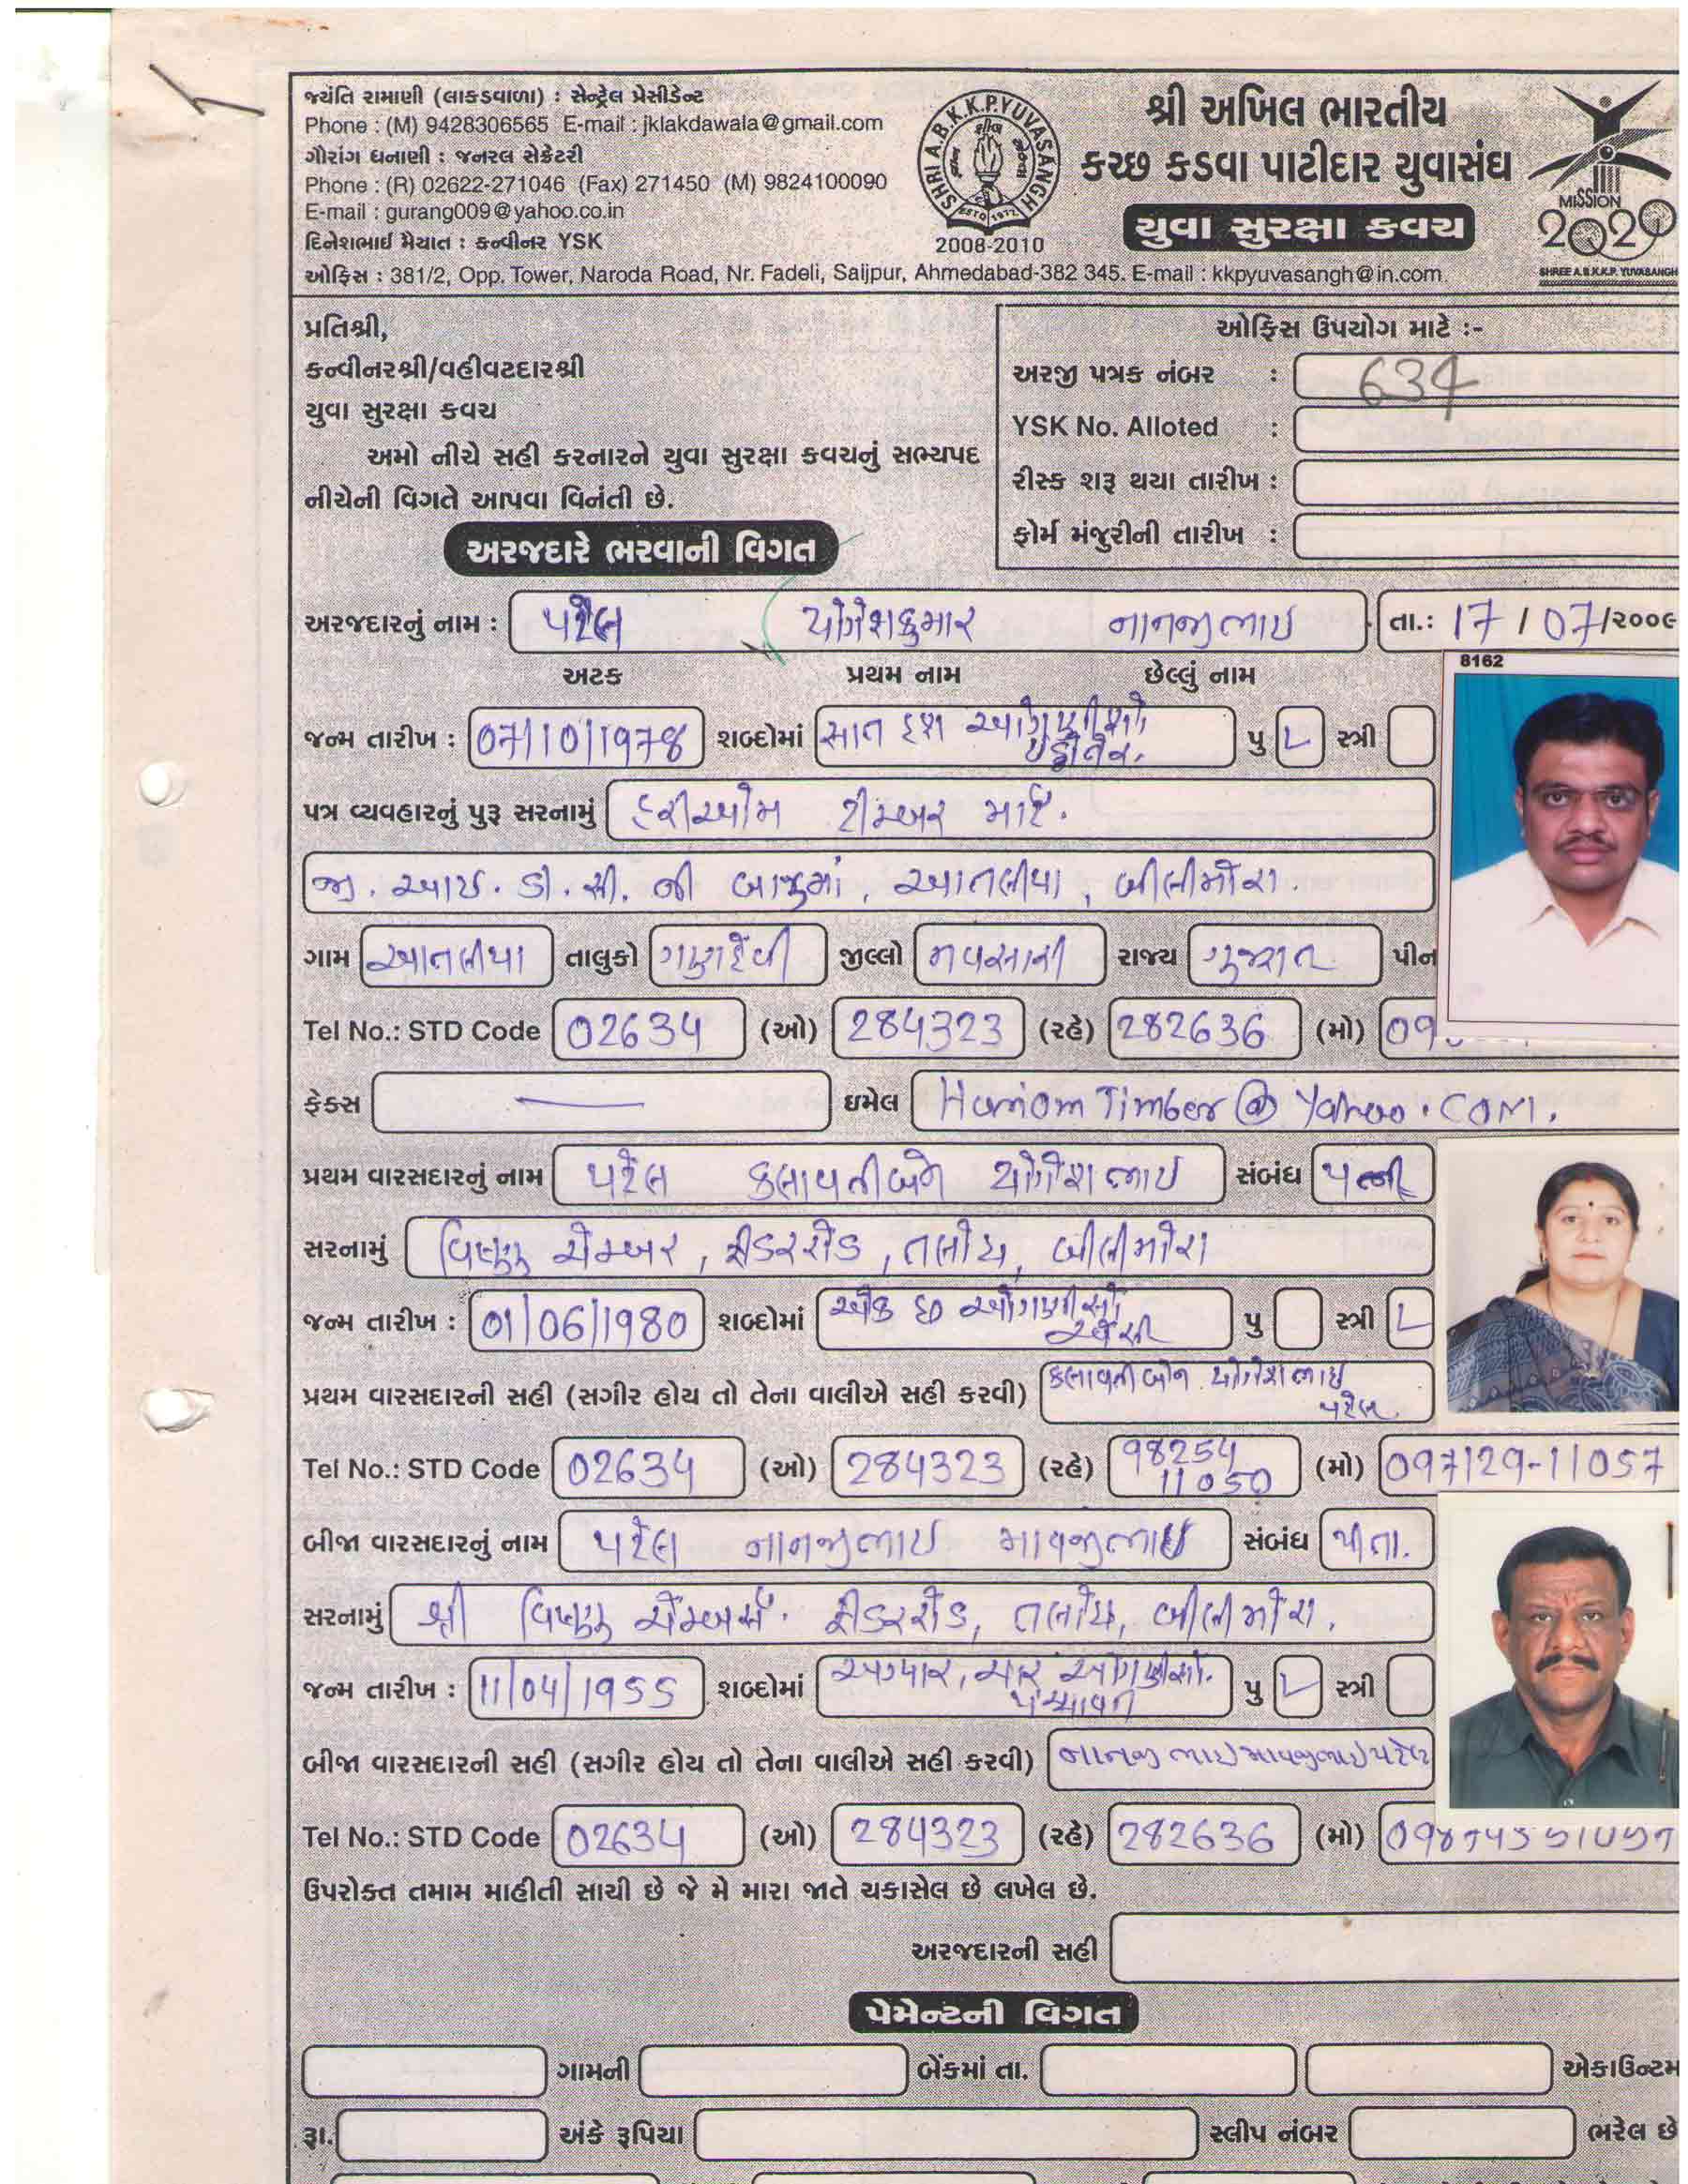 જયંતિ રામાણી (લાકડવાળા) : સેન્ટ્રેલ પ્રેસીડેન્ટ
Phone : (M) 9428306565 E-mail : jklakdawala@gmail.com
ગૌરાંગ ધનાણી : જનરલ સેક્રેટરી
Phone : (R) 02622-271046 (Fax) 271450 (M) 9824100090
E-mail : gurang009@yahoo.co.in
દિનેશભાઈ મૈયાત : કન્વીનર YSK
SHRI A.B.K.K.P.YUVASANGH
ESTD 1972
2008-2010
શ્રી અખિલ ભારતીય
કચ્છ કડવા પાટીદાર યુવાસંઘ
યુવા સુરક્ષા કવચ
MISSION
2020
SHREE A.B.K.K.P. YUVASANGH
ઓફિસ : 381/2, Opp. Tower, Naroda Road, Nr. Fadeli, Saijpur, Ahmedabad-382 345. E-mail : kkpyuvasangh@in.com.
પ્રતિશ્રી,
કન્વીનરશ્રી/વહીવટદારશ્રી
યુવા સુરક્ષા કવચ
અમો નીચે સહી કરનારને યુવા સુરક્ષા કવચનું સભ્યપદ
નીચેની વિગતે આપવા વિનંતી છે.
ઓફિસ ઉપયોગ માટે :-
અરજી પત્રક નંબર : 634
YSK No. Alloted :
રીસ્ક શરૂ થયા તારીખ :
ફોર્મ મંજુરીની તારીખ :
અરજદારે ભરવાની વિગત
અરજદારનું નામ : પટેલ યોગેશકુમાર નાનજીભાઇ તા.: 17/07/૨૦૦૯
અટક પ્રથમ નામ છેલ્લું નામ
8162
જન્મ તારીખ : 07/10/1978 શબ્દોમાં સાત દશ ઓગણીસો પુ સ્ત્રી
પત્ર વ્યવહારનું પુરૂ સરનામું હરીઓમ ટીમ્બર માર્ટ.
જી. આઇ. ડી. સી. ની બાજુમાં, આંતલીયા, બીલીમોરા.
ગામ આંતલીયા તાલુકો ગણદેવી જીલ્લો નવસારી રાજ્ય ગુજરાત પીન
Tel No.: STD Code 02634 (ઓ) 284323 (રહે) 282636 (મો) 09
ફેક્સ — ઇમેલ HariomTimber@Yahoo.COM.
પ્રથમ વારસદારનું નામ પટેલ કલાવતીબેન યોગેશભાઇ સંબંધ પત્ની
સરનામું વિષ્ણુ ચેમ્બર, રીડરરોડ, તલોધ, બીલીમોરા
જન્મ તારીખ : 01/06/1980 શબ્દોમાં એક છ ઓગણીસો એંસી પુ સ્ત્રી
પ્રથમ વારસદારની સહી (સગીર હોય તો તેના વાલીએ સહી કરવી) કલાવતીબેન યોગેશભાઇ પટેલ
Tel No.: STD Code 02634 (ઓ) 284323 (રહે) 98254 11050 (મો) 097129-11057
બીજા વારસદારનું નામ પટેલ નાનજીભાઇ માવજીભાઇ સંબંધ પીતા.
સરનામું શ્રી વિષ્ણુ ચેમ્બર્સ. રીડરરોડ, તલોધ, બીલીમોરા.
જન્મ તારીખ : 11/04/1955 શબ્દોમાં અગ્યાર, ચાર ઓગણીસો. પંચાવન પુ સ્ત્રી
બીજા વારસદારની સહી (સગીર હોય તો તેના વાલીએ સહી કરવી) નાનજીભાઇ માવજીભાઇ પટેલ
Tel No.: STD Code 02634 (ઓ) 284323 (રહે) 282636 (મો)
ઉપરોક્ત તમામ માહીતી સાચી છે જે મે મારા જાતે ચકાસેલ છે લખેલ છે.
અરજદારની સહી
પેમેન્ટની વિગત
ગામની બેંકમાં તા. એકાઉન્ટમ
રૂા. અંકે રૂપિયા સ્લીપ નંબર ભરેલ છે